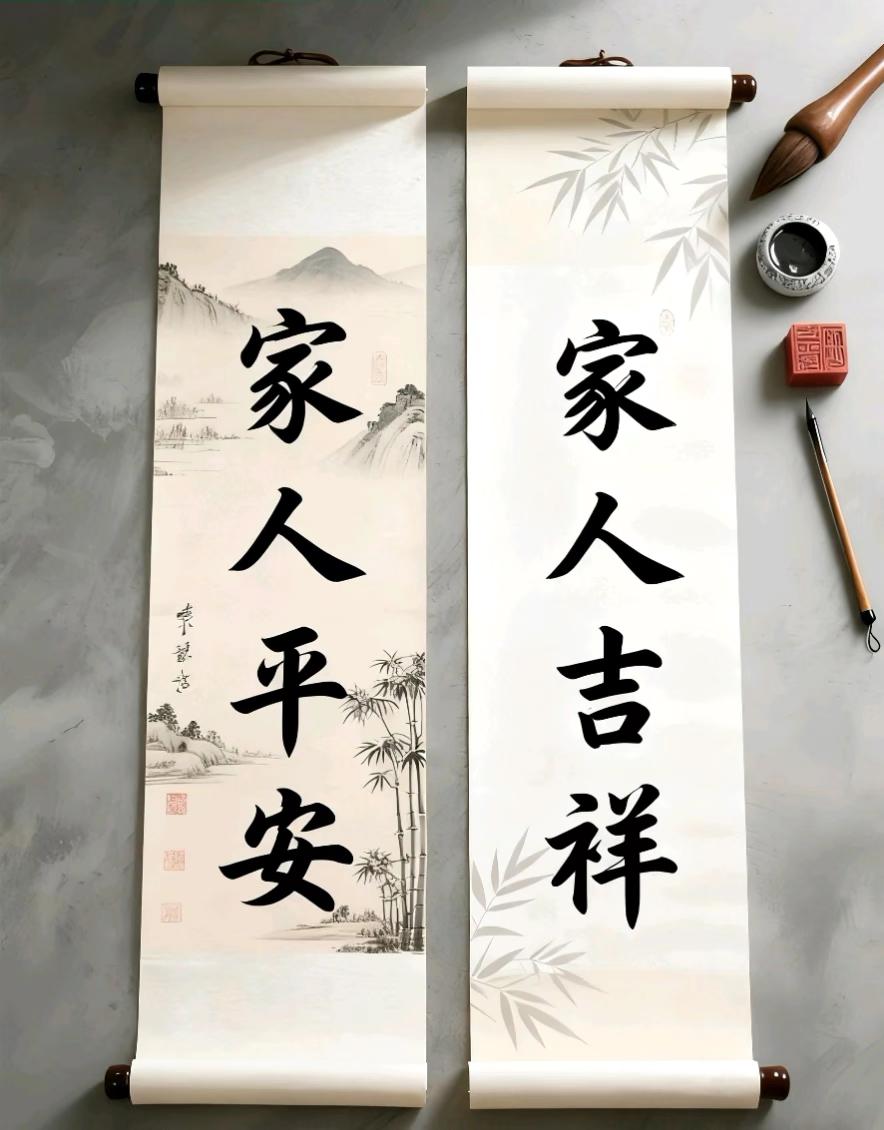 家人平安
家人吉祥